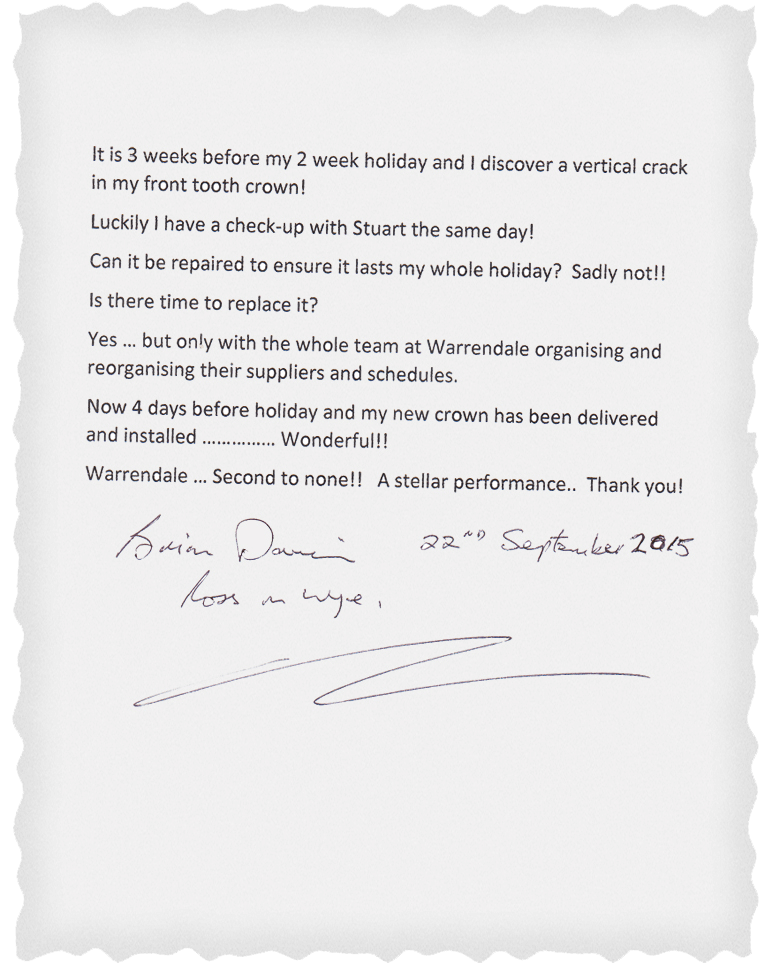 It is 3 weeks before my 2 week holiday and I discover a vertical crack
in my front tooth crown!
Luckily I have a check-up with Stuart the same day!
Can it be repaired to ensure it lasts my whole holiday? Sadly not!!
Is there time to replace it?
Yes ... but only with the whole team at Warrendale organising and
reorganising their suppliers and schedules.
Now 4 days before holiday and my new crown has been delivered
and installed ............... Wonderful!!
Warrendale ... Second to none!! A stellar performance.. Thank you!
Brian 22ND September 2015
Ross on Wye.